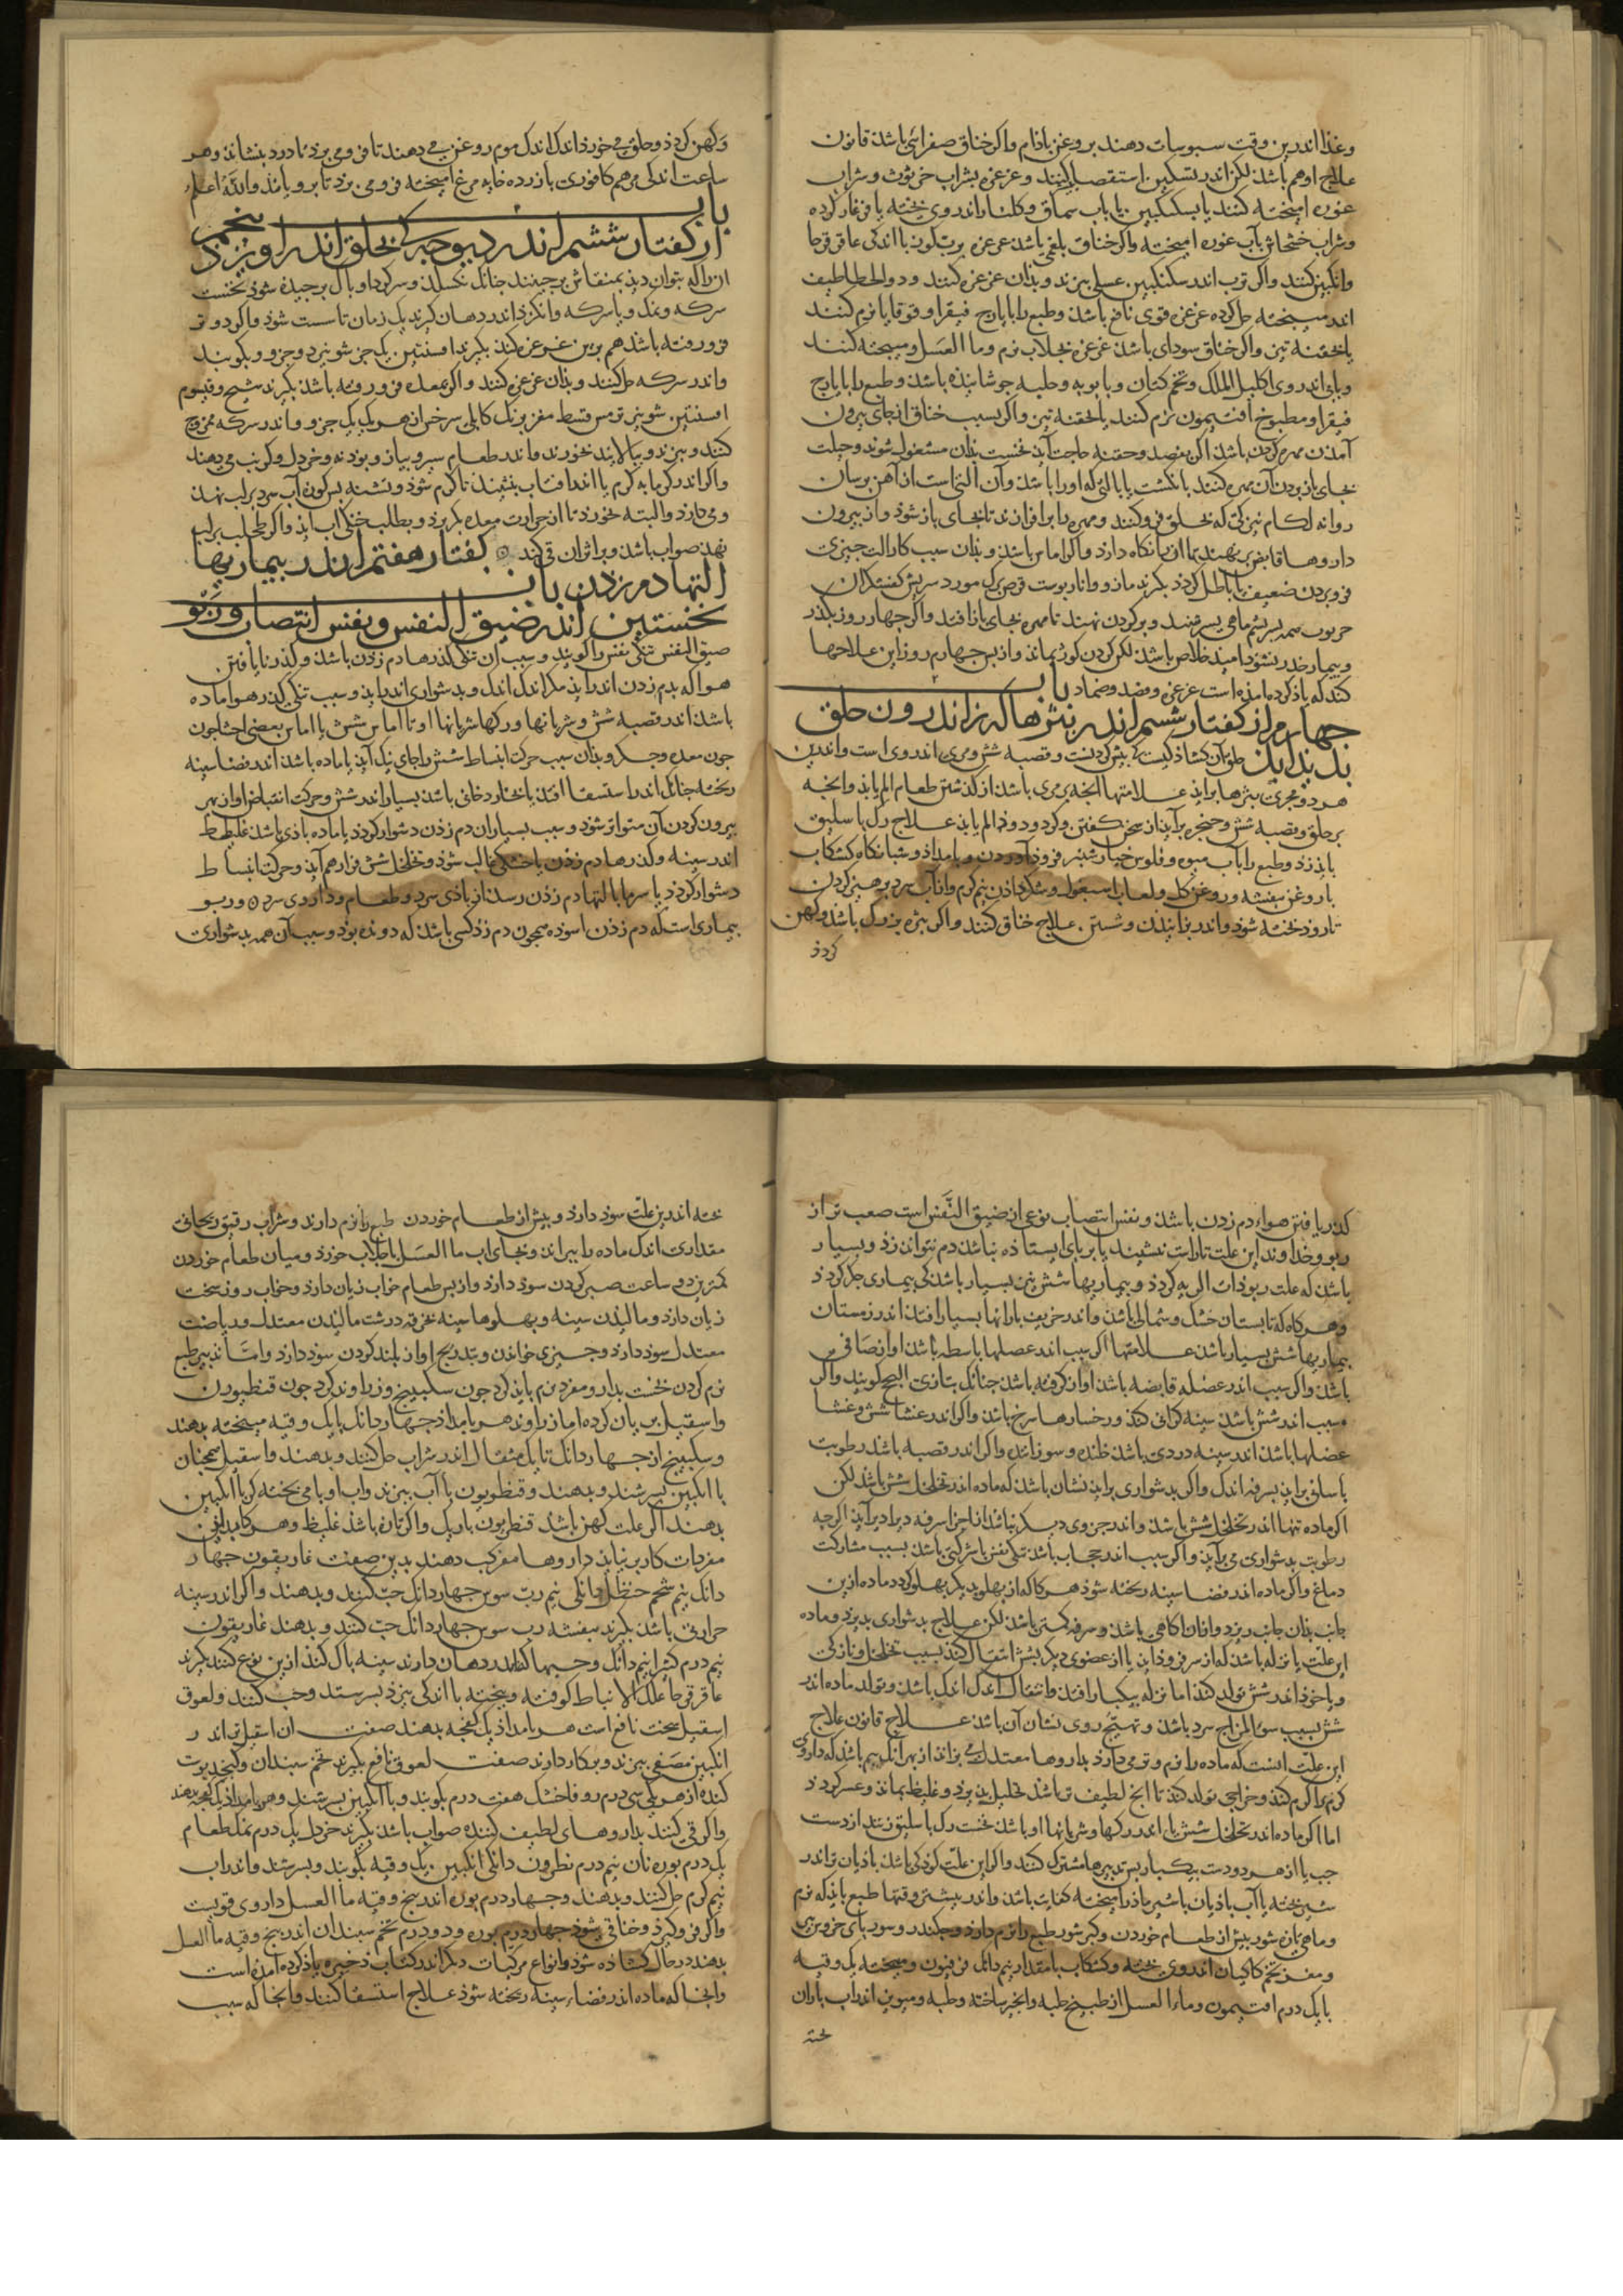 وغذا اندرین وقت سبوسات دهند بروغن باذام واکر خناق صفرایی باشذ قانون
علاج او هم باشذ لکن اندر تسکین استقصا کنند وغرغره بشراب خرتوث وشراب
غوره امیخته کنند یا بسکنکبین یا باب سماق وکلنار اندروی پخته
وشراب خشخاش بآب غوره امیخته واکر خناق بلغمی باشذ غرغره برب کوز با اندکی عاقرقرحا
وانکبین کنند واکر ترب اندر سکنکبین عسلی بپزند وبذان غرغره کنند
اندر میبخته حل کرده غرغره قوی نافع باشذ وطبع را بایارج فیقرا وقوقایا نرم کنند
یا بحقنه تیز واکر خناق سودای باشذ غرغره بجلاب نرم وما العسل ومیبخته کنند
وبابی اندروی اکلیل الملک وتخم کتان وبابونه وحلبه جوشانیذه باشذ وطبع را بایارج
فیقرا ومطبوخ افتیمون نرم کنند یا بحقنه تیز واکر بسبب خناق از جای بیرون
آمذن مهره کردن باشذ اکر بفصد وحقنه حاجت آیذ نخست بذان مشغول شوند وحیلت
بجای باز بردن آن مهره کنند بانکشت یا بالتی که اورا باشذ وآن التی است از آهن برسان
روانه لکام نیز کی که بحلق فرو کنند ومهره را برافرازند تا بجای باز شوذ واز بیرون
داروها قابض برنهند تا آن را نکاه دارد واکر اماس باشذ وبذان سبب کار الت چیزی
فرو بردن ضعیف یا باطل کردذ بکیرند مازو وانار پوست
وبیمار خدر نشوذ امیذ خلاص باشذ لکن کردن کوژ بماند واز پس چهارم روز این علاجها
کنند که یاذ کرده امذه است غرغره وفصد وضماد باب
چهارم از کفتار ششم اندر بثرها که از اندرون حلق
پدید آید حلق آن کشاذکیست که پیش کردنست وقصبه شش ومری اندروی است واندرین
هر دو مجری بثرها برایذ علامتها آنچه بر مری باشذ از کذشتن طعام الم یابذ وانچه
بر حلق وقصبه شش وحنجره برآیذ از سخن کفتن وکرد ودوذ الم یابذ علاج رک باسلیق
بایذ زد وطبع را باب میوه وفلوس خیارشنبر فروذ آوردن وبامداذ وشبانکاه کشکاب
با روغن بنفشه وروغن کل ولعاب اسبغول وشکر داذن نیم کرم واز آب سرد پرهیز کردن
تا زوذ پخته شوذ واندر پزانیذن وشستن علاج خناق کنند واکر بثره بزرک باشذ وکهن
کردذ
وکهن کردذ وحلق می خورذ اندک اندک موم روغن می دهند تا فرو می برذ تا درد بنشاند وهر
ساعت اندکی مرهم کافوری با زرده خایه مرغ امیخته فرو می برذ تا برویانذ والله اعلم
باب پنجم
از کفتار ششم اندر دیوچه که بحلق اندر آویزد
انرا که بتوان دیذ بمنقاش برچینند چنانک نکسلذ
سرکه ونمک ویا سرکه وانکزد اندر دهان کیرند یک زمان تا سست شوذ واکر دورتر
فرو رفته باشذ هم برین غرغره کنند بکیرند افسنتین یک جزو شونیز دو جزو وبکوبند
واندر سرکه حل کنند وبذان غرغره کنند واکر بمعده فرو رفته باشذ بکیرند شیح وقیسوم
افسنتین شونیز ترمس قسط مغز برنک کابلی سرخس از هر یک یک جزو واندر سرکه ممزوج
کنند وبپزند وبپالایند بخورند واندر طعام سیر وپیاز وپوذنه وخردل وکرنب می دهند
واکر اندر کرمابه کرم یا اندر افتاب بنشیند تا کرم شوذ وتشنه پس کوزه آب سرد بر لب نهذ
ومی دارد والبته نخورد تا از حرارت معده بکریزد وبطلب خنکی اب آیذ واکر طحلب بر لب
نهذ صواب باشذ وبر اثر ان قی کند کفتار هفتم اندر بیماریها
التها دم زدن باب
نخستین اندر ضیق النفس ونفس انتصاب وربو
ضیق النفس تنکی نفس را کویند وسبب آن تنکی کذرها دم زدن باشذ وکذر نایافتن
هوا که بدم زدن اندر آیذ مکر اندک اندک وبدشواری اندر آیذ وسبب تنکی کذر هوا ماده
باشذ اندر قصبه شش وشریانها ورکها شریانها او تا اماس شش یا اماس بعضی احشا چون
چون معده وجکر وبذان سبب حرکت انبساط شش را جای نیک آیذ یا ماده باشذ اندر فضا سینه
ریخته چنانک اندر استسقا افتذ یا بخار دخانی باشذ بسیار اندر شش وحرکت انقباض او از بهر
بیرون کردن آن متواتر شوذ وسبب بسیاران دم زدن دشوار کردذ یا ماده باذی باشذ غلیظ
اندر سینه وکذرها دم زدن یا خشکی غالب شوذ وتخلخل شش فراز هم آیذ وحرکت انبساط
دشوار کردذ یا سرما بالتها دم زدن رسذ از باذی سرد وطعام وداروی سرد وربو
بیماری است که دم زدن اسوده همچون دم زدن کسی باشذ که دونده بوذ وسبب آن همه بدشواری
کذر یافتن هواء دم زدن باشذ ونفس انتصاب نوعی از ضیق النَّفَس است صعب تر از
ربو وخداوند این علت تا راست ننشیند یا بر پای ایستاذه نباشذ دم نتواند زد وبسیار
باشذ که علت ربو ذات الریه کردذ وبیماریها شش نیز بسیار باشذ کی بیماری جکر کردذ
وهر کاه که تابستان خشک وشمالی باشذ واندر خریف بارانها بسیار افتذ اندر زمستان
بیماریها شش بسیار باشذ علامتها اکر سبب اندر عضلها باسطه باشذ اواز صافی
باشذ واکر سبب اندر عضله قابضه باشذ اواز کرفته باشذ چنانک بتازی البحح کویند واکر
سبب اندر شش باشذ سینه کرانی کند ورخسارها سرخ باشذ واکر اندر غشا شش وغشا
عضلها باشذ اندر سینه دردی باشذ خلنده وسوزاننده واکر اندر قصبه باشذ رطوبت
باسانی برایذ بسرفه اندک واکر بدشواری برایذ نشان باشذ که ماده اندر تخلخل شش باشذ لکن
اکر ماده تنها اندر تخلخل شش باشذ واندر جزوی دیکر نباشذ
رطوبت بدشواری می برآیذ واکر سبب اندر حجاب باشذ تنکی نفس بیشتر کمتر باشذ بسبب مشارکت
دماغ واکر ماده اندر فضا سینه ریخته شوذ هر کاه که از پهلو بدیکر پهلو کردد ماده ازین
جانب بذان جانب ریزد وازان اکاهی باشذ وسرفه کمتر باشذ لکن علاج بدشواری پذیرد وماده
این علت یا نزله باشذ که از سر فرو ذایذ یا از عضوی دیکر بشش انتقال کند بسبب تخلخل ونازکی
ویا خوذ اندر شش تولد کند اما نزله بیکبار افتذ وانتقال اندک اندک باشذ وتولد ماده اندر
شش بسبب سوء المزاج سرد باشذ وتهبج روی نشان آن باشذ علاج قانون علاج
این علت انست که ماده را نرم وتر می دارد بداروها معتدل می پزاند از بهر آنک بیم باشذ که داروی
کرم را کرم کند وخراجی تولد کند تا انچ لطیف تر باشذ تحلیل پذیرد وغلیظ بماند وعسر کردذ
اما اکر ماده اندر تخلخل شش یا اندر رکها وشریانها او باشذ نخست رک باسلیق زنند از دست
چپ یا از هر دو دست بیکبار پس تدبیرها مشترک کنند واکر این علت کوذکی را باشذ باذیان تر اندر
شیر پخته یا آب باذیان با شیر ماذر امیخته کفایت باشذ واندر بیشتر وقتها طبع بایذ که نرم
وماهی تازه شور پیش از طعام خوردن وکبر شور طبع را نرم دارد وچکندر وسور بای خروس پیر
ومغز تخم کاکیان اندروی پخته وکشکاب با مقدار نیم دانک فرفیون ومیبخته یک وقیه
با یک درم افتیمون وماء العسل از طبیخ حلبه وانجیر ساخته وحلبه ومویز اندر اب باران
پخته
پخته اندرین علّت سوذ دارد وپیش از طعام خوردن طبع را نرم دارند وشراب رقیق ریحانی
مقداری اندک ماده را بپزاند وبجای اب ما العسل یا جلاب خورذ ومیان طعام خوردن
کمتر دو ساعت صبر کردن سوذ دارد واز پس طعام خواب زیان دارد وخواب روز سخت
زیان دارد ومالیذن سینه وپهلوها سینه بخرقه درشت مالیذن معتدل وریاضت
معتدل سوذ دارد وچیزی خواندن وبتدریج اواز بلند کردن سوذ دارد وامّا تدبیر طبع
نرم کردن نخست بدارو مفرد نرم بایذ کرد چون سکبینج وزراوند کرد چون قنطوریون
واسقیل بریان کرده اما زراوند هر بامداذ چهار دانک با یک وقیه میبخته بدهند
وسکبینج از چهار دانک تا یک مثقال اندر شراب حل کنند وبدهند واسقیل همچنان
با انکبین بسرشند وبدهند وقنطوریون با آب بپزند واب او با می پخته کی با انکبین
بدهند اکر علت کهن باشذ قنطوریون باریک واکر تازه باشذ غلیظ وهر کاه بذین
مفردات کار برنیایذ داروها مرکب دهند بدین صفت غاریقون چهار
دانک نیم شحم حنظل دانکی نیم ربّ سوس چهار دانک حبّ کنند وبدهند واکر اندر سینه
حرارتی باشذ بکیرند بنفشه رب سوس چهار دانک حب کنند وبدهند غاریقون
نیم درم کثیرا نیم دانک وحبها که اندر دهان دارند سینه پاک کند ازین نوع کنند بکیرند
عاقرقرحا علک الانباط کوفته وبیخته با اندکی بیرزد بسرشند وحب کنند ولعوق
اسقیل سخت نافع است هر بامداذ یک کفچه بدهند صفت ان اسقیل تر اندر
انکبین مصفی بپزند وبکار دارند صفت لعوقی نافع بکیرند تخم سبندان وکنجد پوست
کنده از هر یکی سی درم زوفا خشک هفت درم بکوبند وبا انکبین بسرشند وهر بامداذ یک کفچه بدهند
واکر قی کنند بداروهای لطیف کننده صواب باشذ بکیرند خردل یک درم نمک طعام
یک درم بوره نان نیم درم نطرون دانکی انکبین یک وقیه بکوبند وبسرشند واندر اب
نیم کرم حل کنند وبدهند وچهار درم بوره اندر پنج وقیه ما العسل داروی قویست
واکر فرو کیرد وخناقی شوذ چهار درم بوره ودو درم تخم سبندان اندر پنج وقیه ما العسل
بدهند در حال کشاذه شوذ وانواع مرکبات دیکر اندر کتاب ذخیره یاذ کرده امذه است
وانجا که ماده اندر فضاء سینه ریخته شوذ علاج استسقا کنند وانجا که سبب